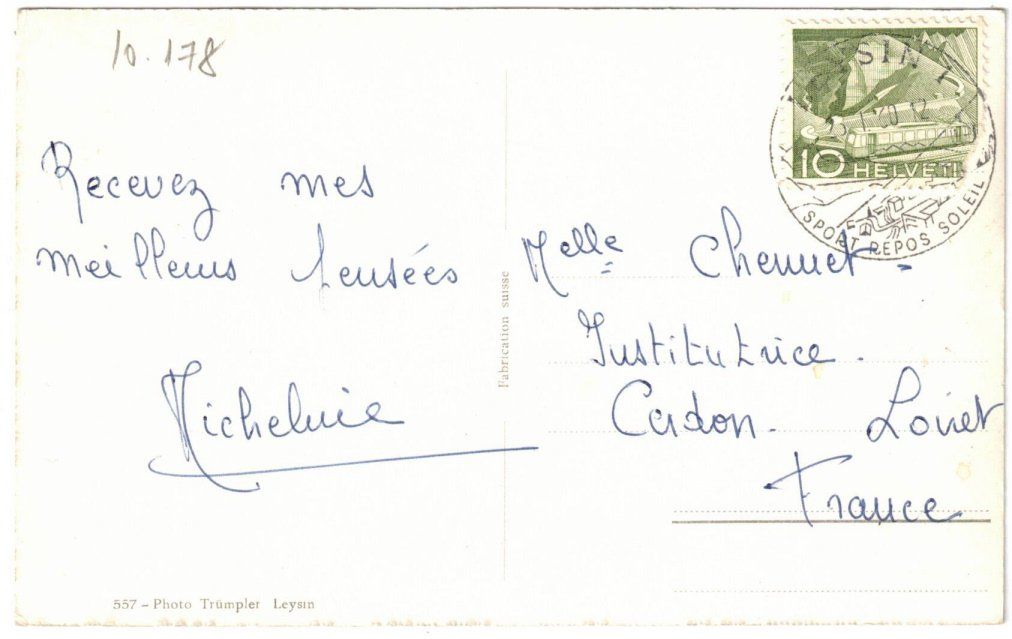 10.178
Recevez mes
meilleurs pensées
Micheline
Melle Chennet
Institutrice.
Cadon. Loiret
France
Fabrication suisse
557 - Photo Trümpler Leysin
10 HELVETI
SPORT REPOS SOLEIL